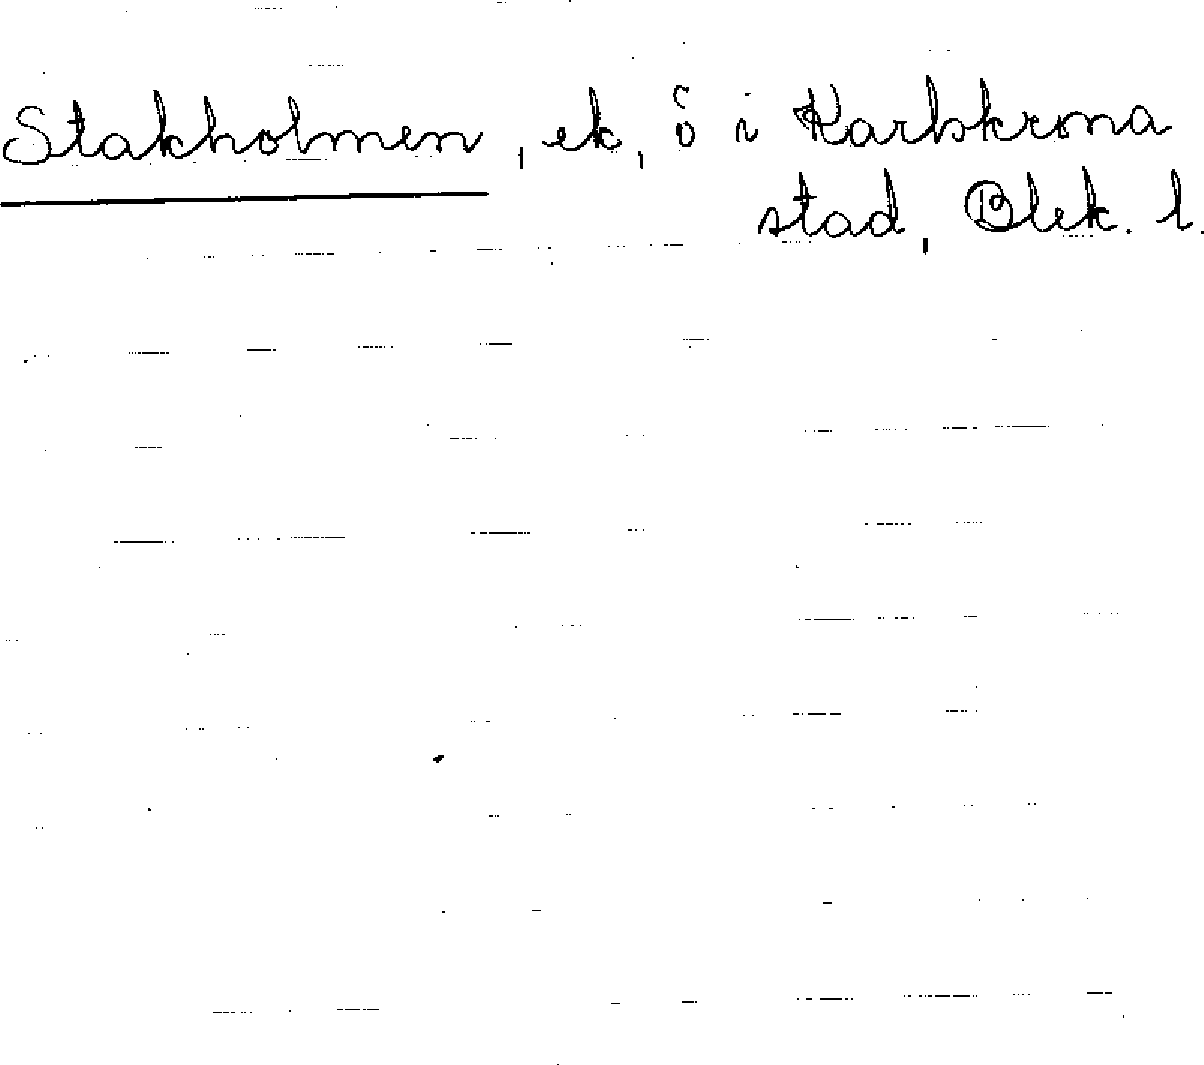 Stakholmen, ek, ö i Karlskrona
stad, Blek. l.